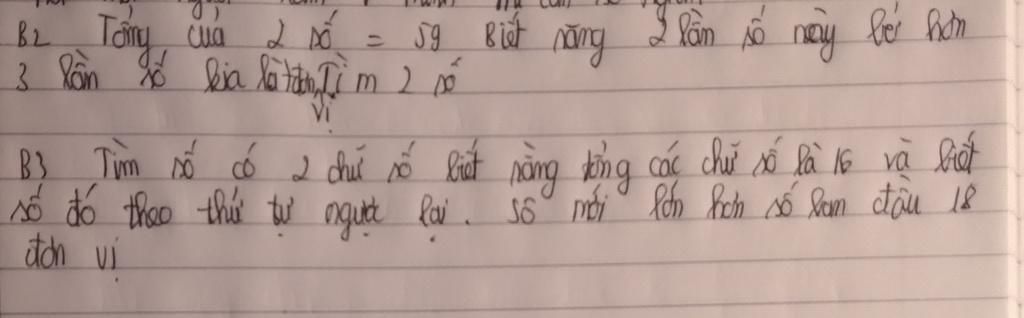 B2 Tổng của 2 số = 59 Biết rằng 2 lần số này bé hơn
3 lần số kia là 7 đơn vị Tìm 2 số
B3 Tìm số có 2 chứ số biết rằng tổng các chứ số là 16 và biết
số đó thao thứ tự ngược lại. số mới lớn hơn số ban đầu 18
đơn vị